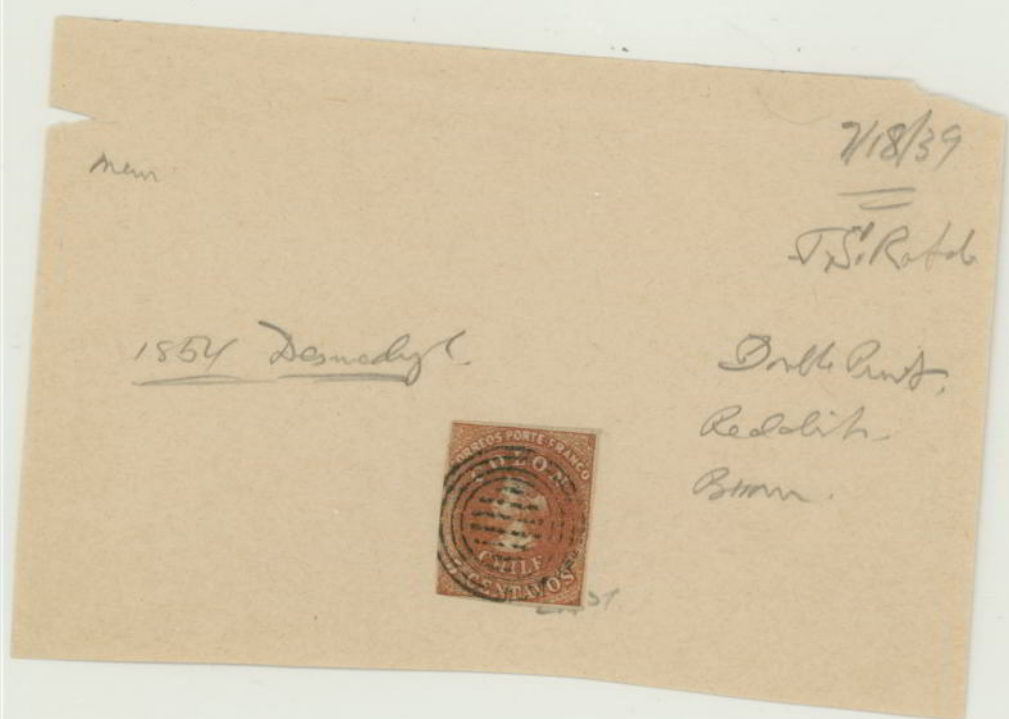 7/18/39
Mem
1854 Desmadryl
Double Print.
Reddish
Brown.
CORREOS PORTE FRANCO
COLON
CHILE
CENTAVOS